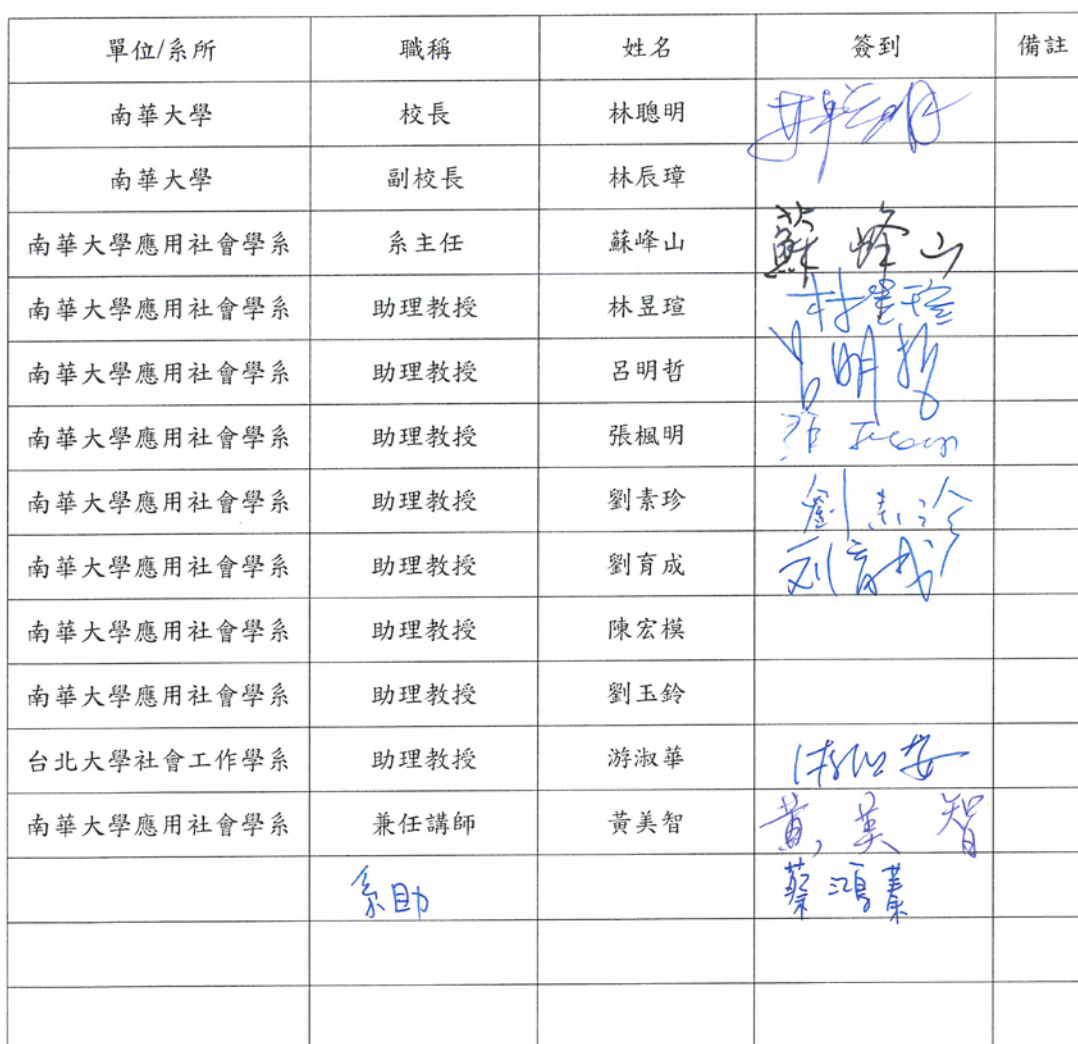 單位/系所 職稱 姓名 簽到 備註
南華大學 校長 林聰明 林聰明
南華大學 副校長 林辰璋
南華大學應用社會學系 系主任 蘇峰山 蘇峰山
南華大學應用社會學系 助理教授 林昱瑄 林昱瑄
南華大學應用社會學系 助理教授 呂明哲 呂明哲
南華大學應用社會學系 助理教授 張楓明
南華大學應用社會學系 助理教授 劉素珍 劉素珍
南華大學應用社會學系 助理教授 劉育成 刘育成
南華大學應用社會學系 助理教授 陳宏模
南華大學應用社會學系 助理教授 劉玉鈴
台北大學社會工作學系 助理教授 游淑華
南華大學應用社會學系 兼任講師 黃美智 黃美智
系助 蔡鴻蓁